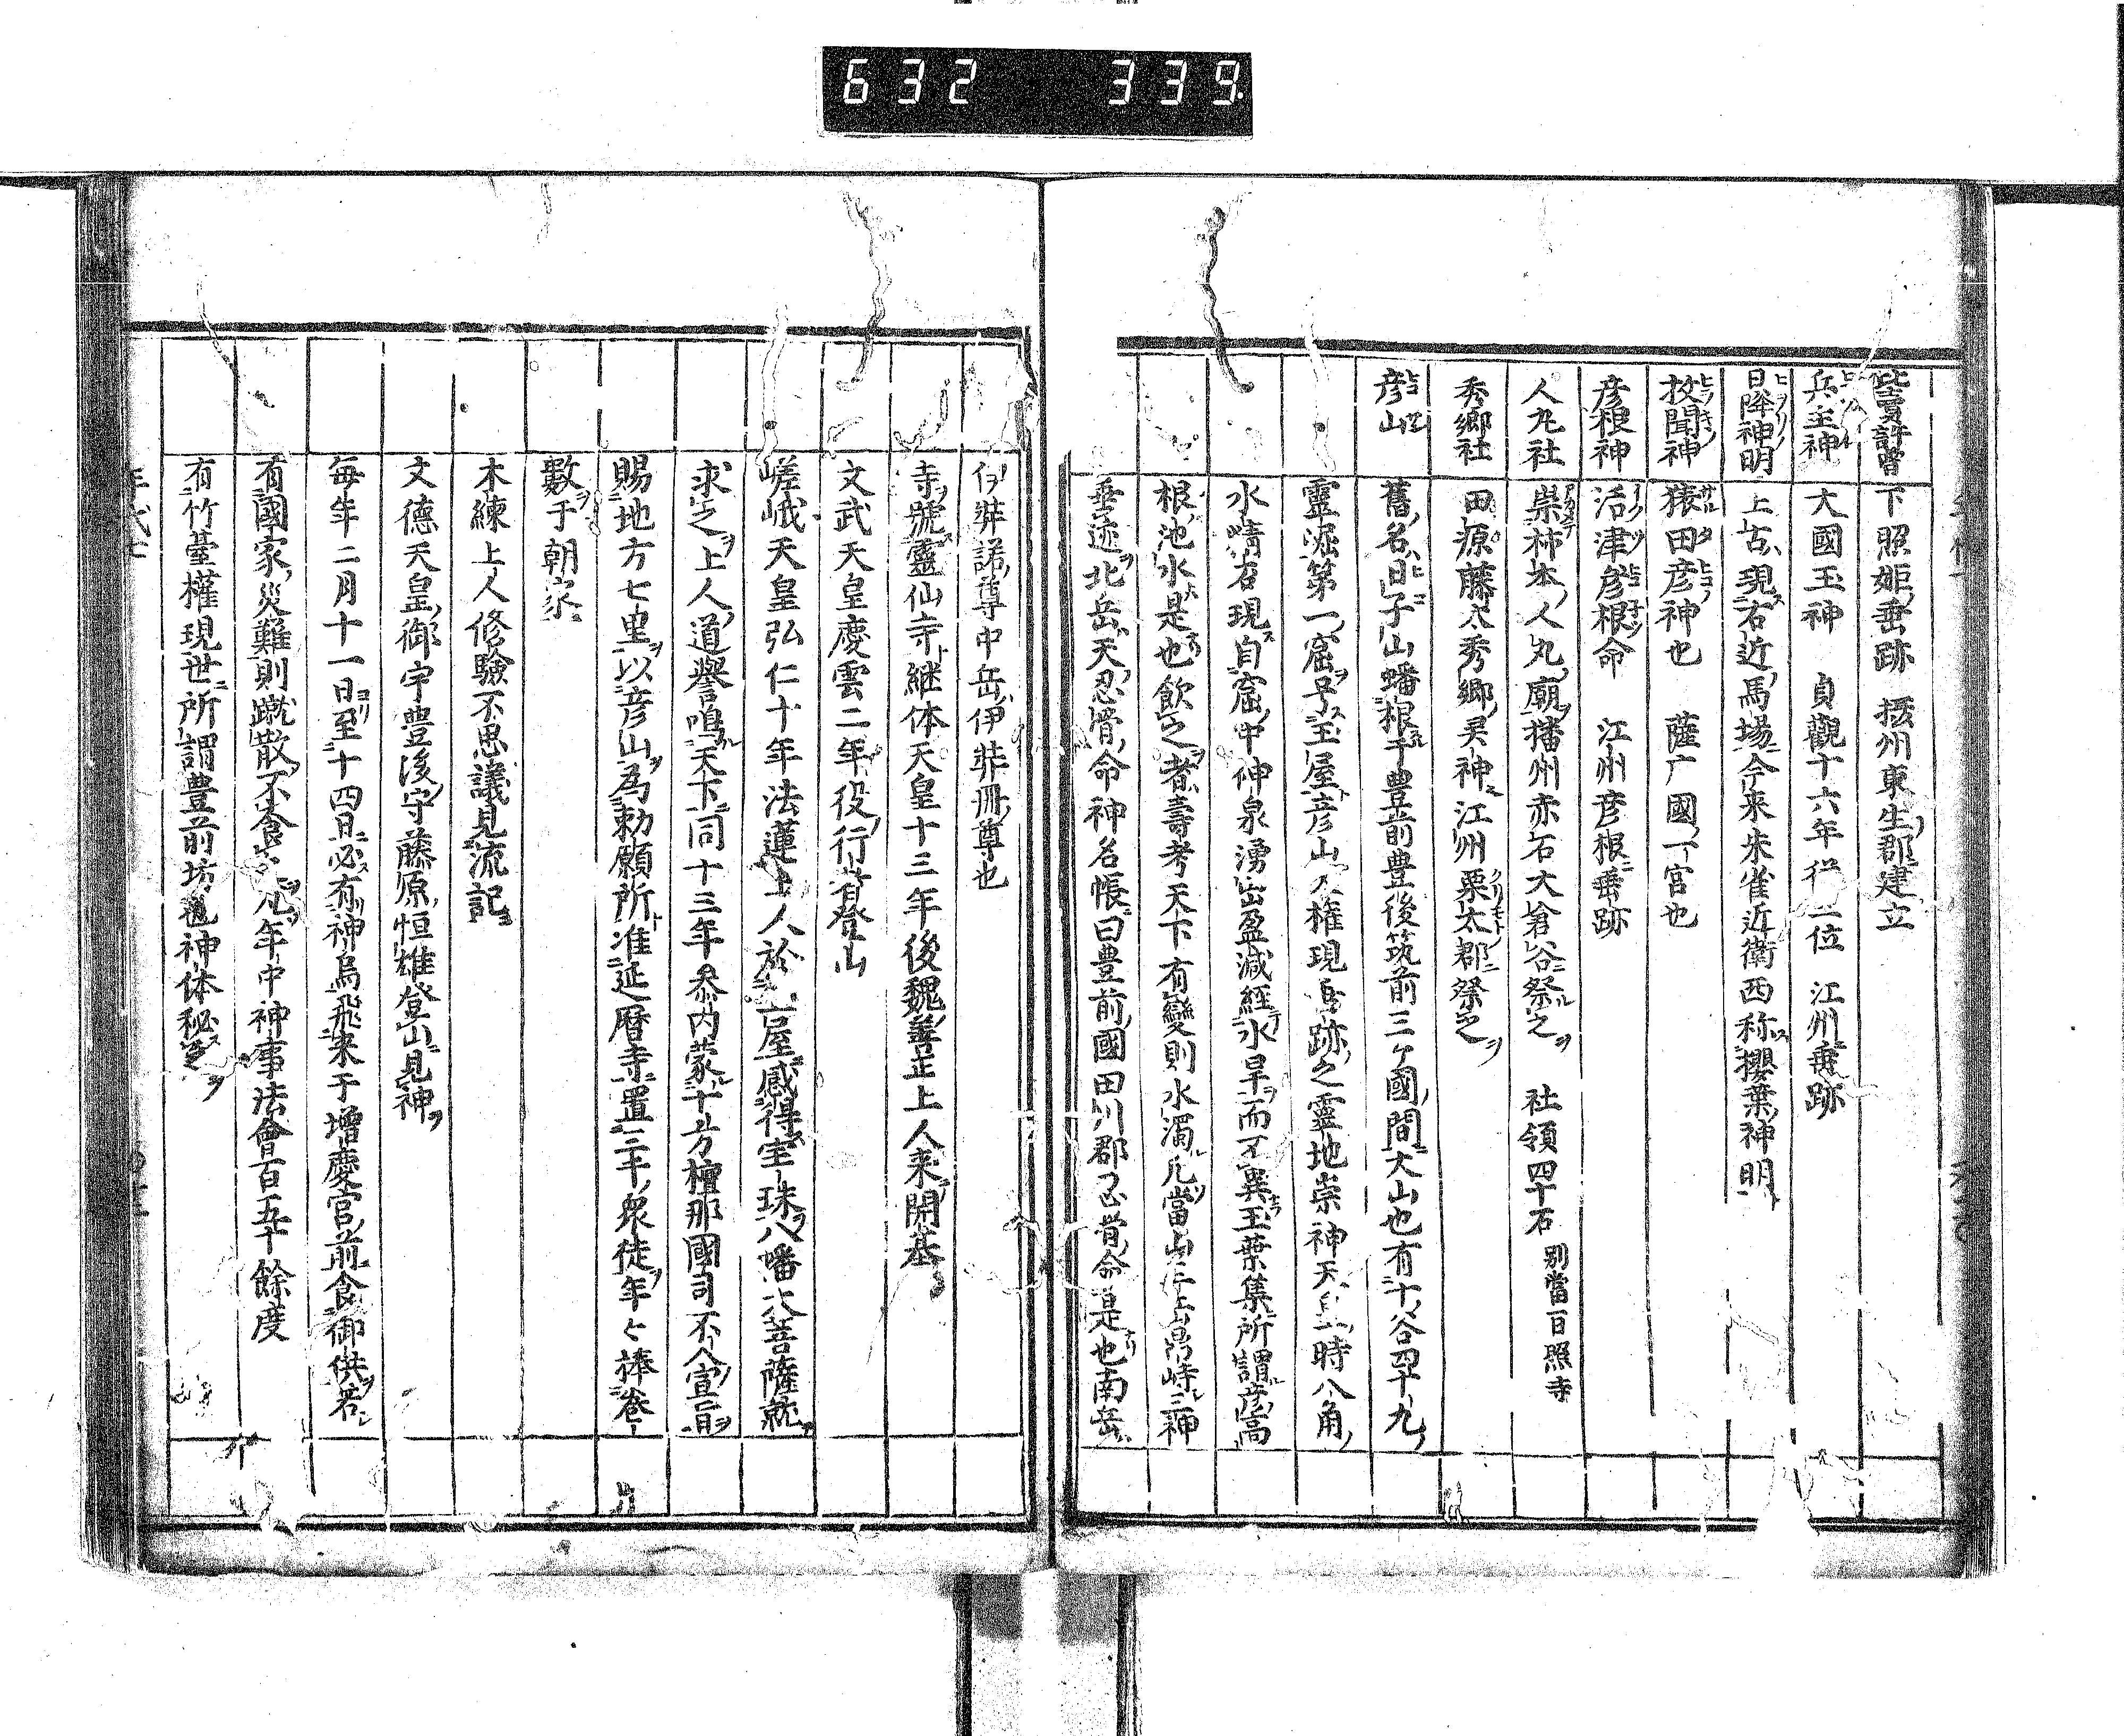 632 339.
毗賣許曽 下照姫垂跡 摂州東生郡建立
兵主神 大國玉神 貞觀十六年 位 江州垂跡
日降神明 上古現右近馬場今来朱雀近衛西称櫻葉神明
枚聞神 猿田彦神也 薩广國一宮也
彦根神 活津彦根命 江州彦根垂跡
人丸社 崇柿本人丸廟播州赤石大倉谷祭之 社領四十石 別當 日照寺
秀郷社 田原藤太秀郷灵神江州栗太郡祭之
彦山 舊名日子山蟠根于豊前豊後筑前三ケ國間大山也有十谷四十九
靈崛第一窟号玉屋彦山 権現 跡之靈地崇神天皇時八角
水晴石現自窟中神泉湧出盈減經水旱而不異玉葉集所謂彦高
根池水是也飲之者壽考天下有變則水濁凡當山 峙三神
垂迹北岳天忍骨命神名帳曰豊前國田川郡 骨命是也南岳
伊弉諾尊中岳伊弉冊尊也
寺號靈仙寺継体天皇十三年後魏善正上人来開基
文武天皇慶雲二年役行者登山
嵯峨天皇弘仁十年法蓮上人於 屋感得宝珠八幡大菩薩就
求之上人道譽鳴天下同十三年参内蒙十方檀那國司不入宣旨
賜地方七里以彦山為勅願所准延暦寺置三千衆徒年々捧巻
數于朝家
木練上人修驗不思議見流記
文德天皇御宇豊後守藤原恒雄登山見神
毎年二月十一日至十四日必有神烏飛来于増慶宮前食御供若
有國家災難則蹴散不食 凡年中神事法會百五十餘度
有竹臺權現世所謂豊前坊也神体秘之